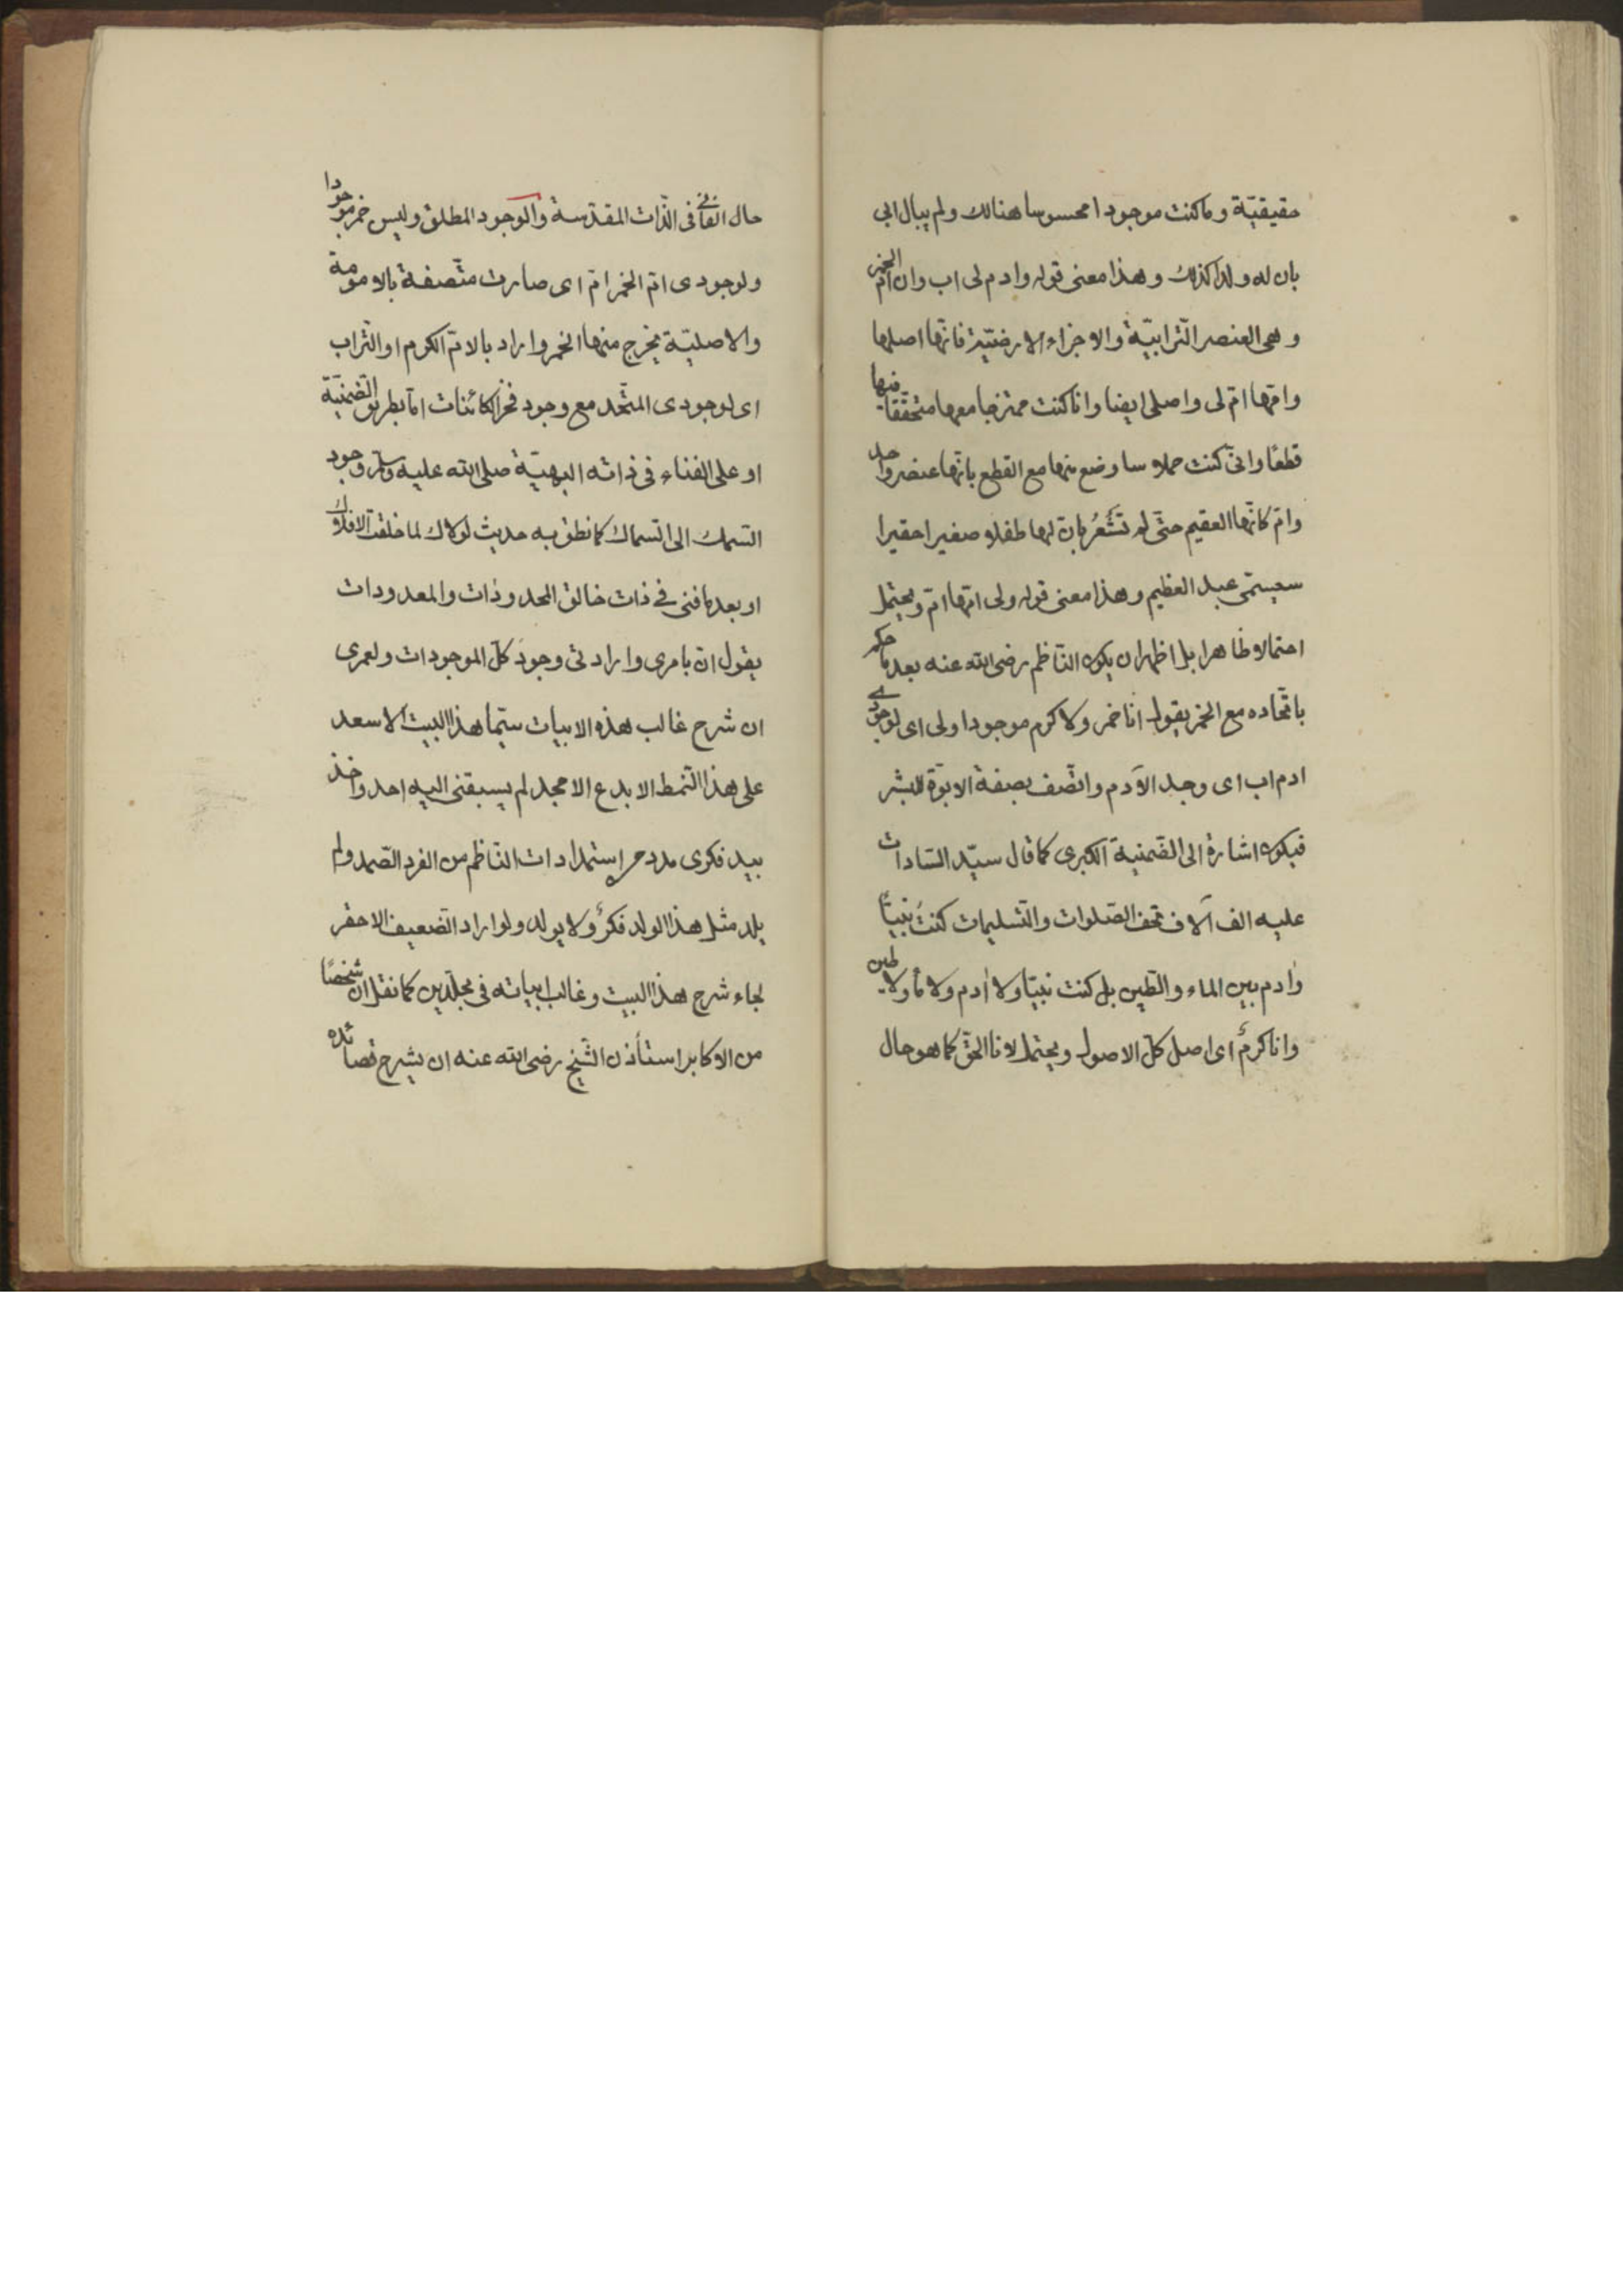 حقيقيّة وما كنت موجودا محسوسا هنالك ولم يبال ابى
بان له ولدا كذلك وهذا معنى قوله وادم لى اب وان امّ الخمر
وهى العنصر الترابيّة والاجزاء الارضيّة فانّها اصلها
وامّها امّ لى واصلى ايضا وانا كنت ممتزجا معها متحقّقا فيها
قطعًا وانى كنت حملا سا وضع منها مع القطع بانّها عنصر واحد
وامّ كانّها العقيم حتّى لم تَشْعُرْ بانّ لها طفلا صغيرا حقيرا
سيسمّى عبد العظيم وهذا معنى قوله ولى امّها امّ ويحتمل
احتمالا ظاهرا بل اظهر ان يكون النّاظم رضى الله عنه بعد ما حكم
باتّحاده مع الخمر يقول انا خمر ولا كرم موجودا ولى اى لوجودى
ادم اب اى وجد الآدم واتّصف بصفة الابوّة للبشر
فيكون اشارة الى الضّمنية الكبرى كما قال سيّد السّادات
عليه الف آلاف تحف الصّلوات والتّسليمات كنتُ نبيًّا
وادم بين الماء والطّين بل كنت نبيّا ولا ادم ولا ماء ولا طين
وانا كرمٌ اى اصل كلّ الاصول ويحتمل لانا الحقّ كما هو حال
حال الفانى فى الذّات المقدّسة والوجود المطلق وليس خمر موجودا
ولوجودى امّ الخمر امّ اى صارت متّصفة بالامومة
والاصليّة يخرج منها الخمر واراد بالامّ الكرم او التّراب
اى لوجودى المتّحد مع وجود فخر الكائنات امّا بطريق الضّمنيّة
او على الفناء فى ذاته البهيّة صلى الله عليه وسلم وجود
السّمك الى السّماك كما نطق به حديث لولاك لما خلقت الافلاك
او بعد ما فنى فى ذات خالق المحدودات والمعدودات
يقول انّ بامرى وارادتى وجود كلّ الموجودات ولعمرى
ان شرح غالب هذه الابيات سيّما هذا البيت الاسعد
على هذا النّمط الابدع الامجد لم يسبقنى اليه احد واخذ
بيد فكرى مدد استمدادات النّاظم من الفرد الصّمد ولم
يلد مثل هذا الولد فكرٌ ولا يولد ولو اراد الضّعيف الاحقر
لجاء شرح هذا البيت وغالب ابياته فى مجلّدين كما نقل ان شخصًا
من الاكابر استأذن الشّيخ رضى الله عنه ان يشرح قصائده